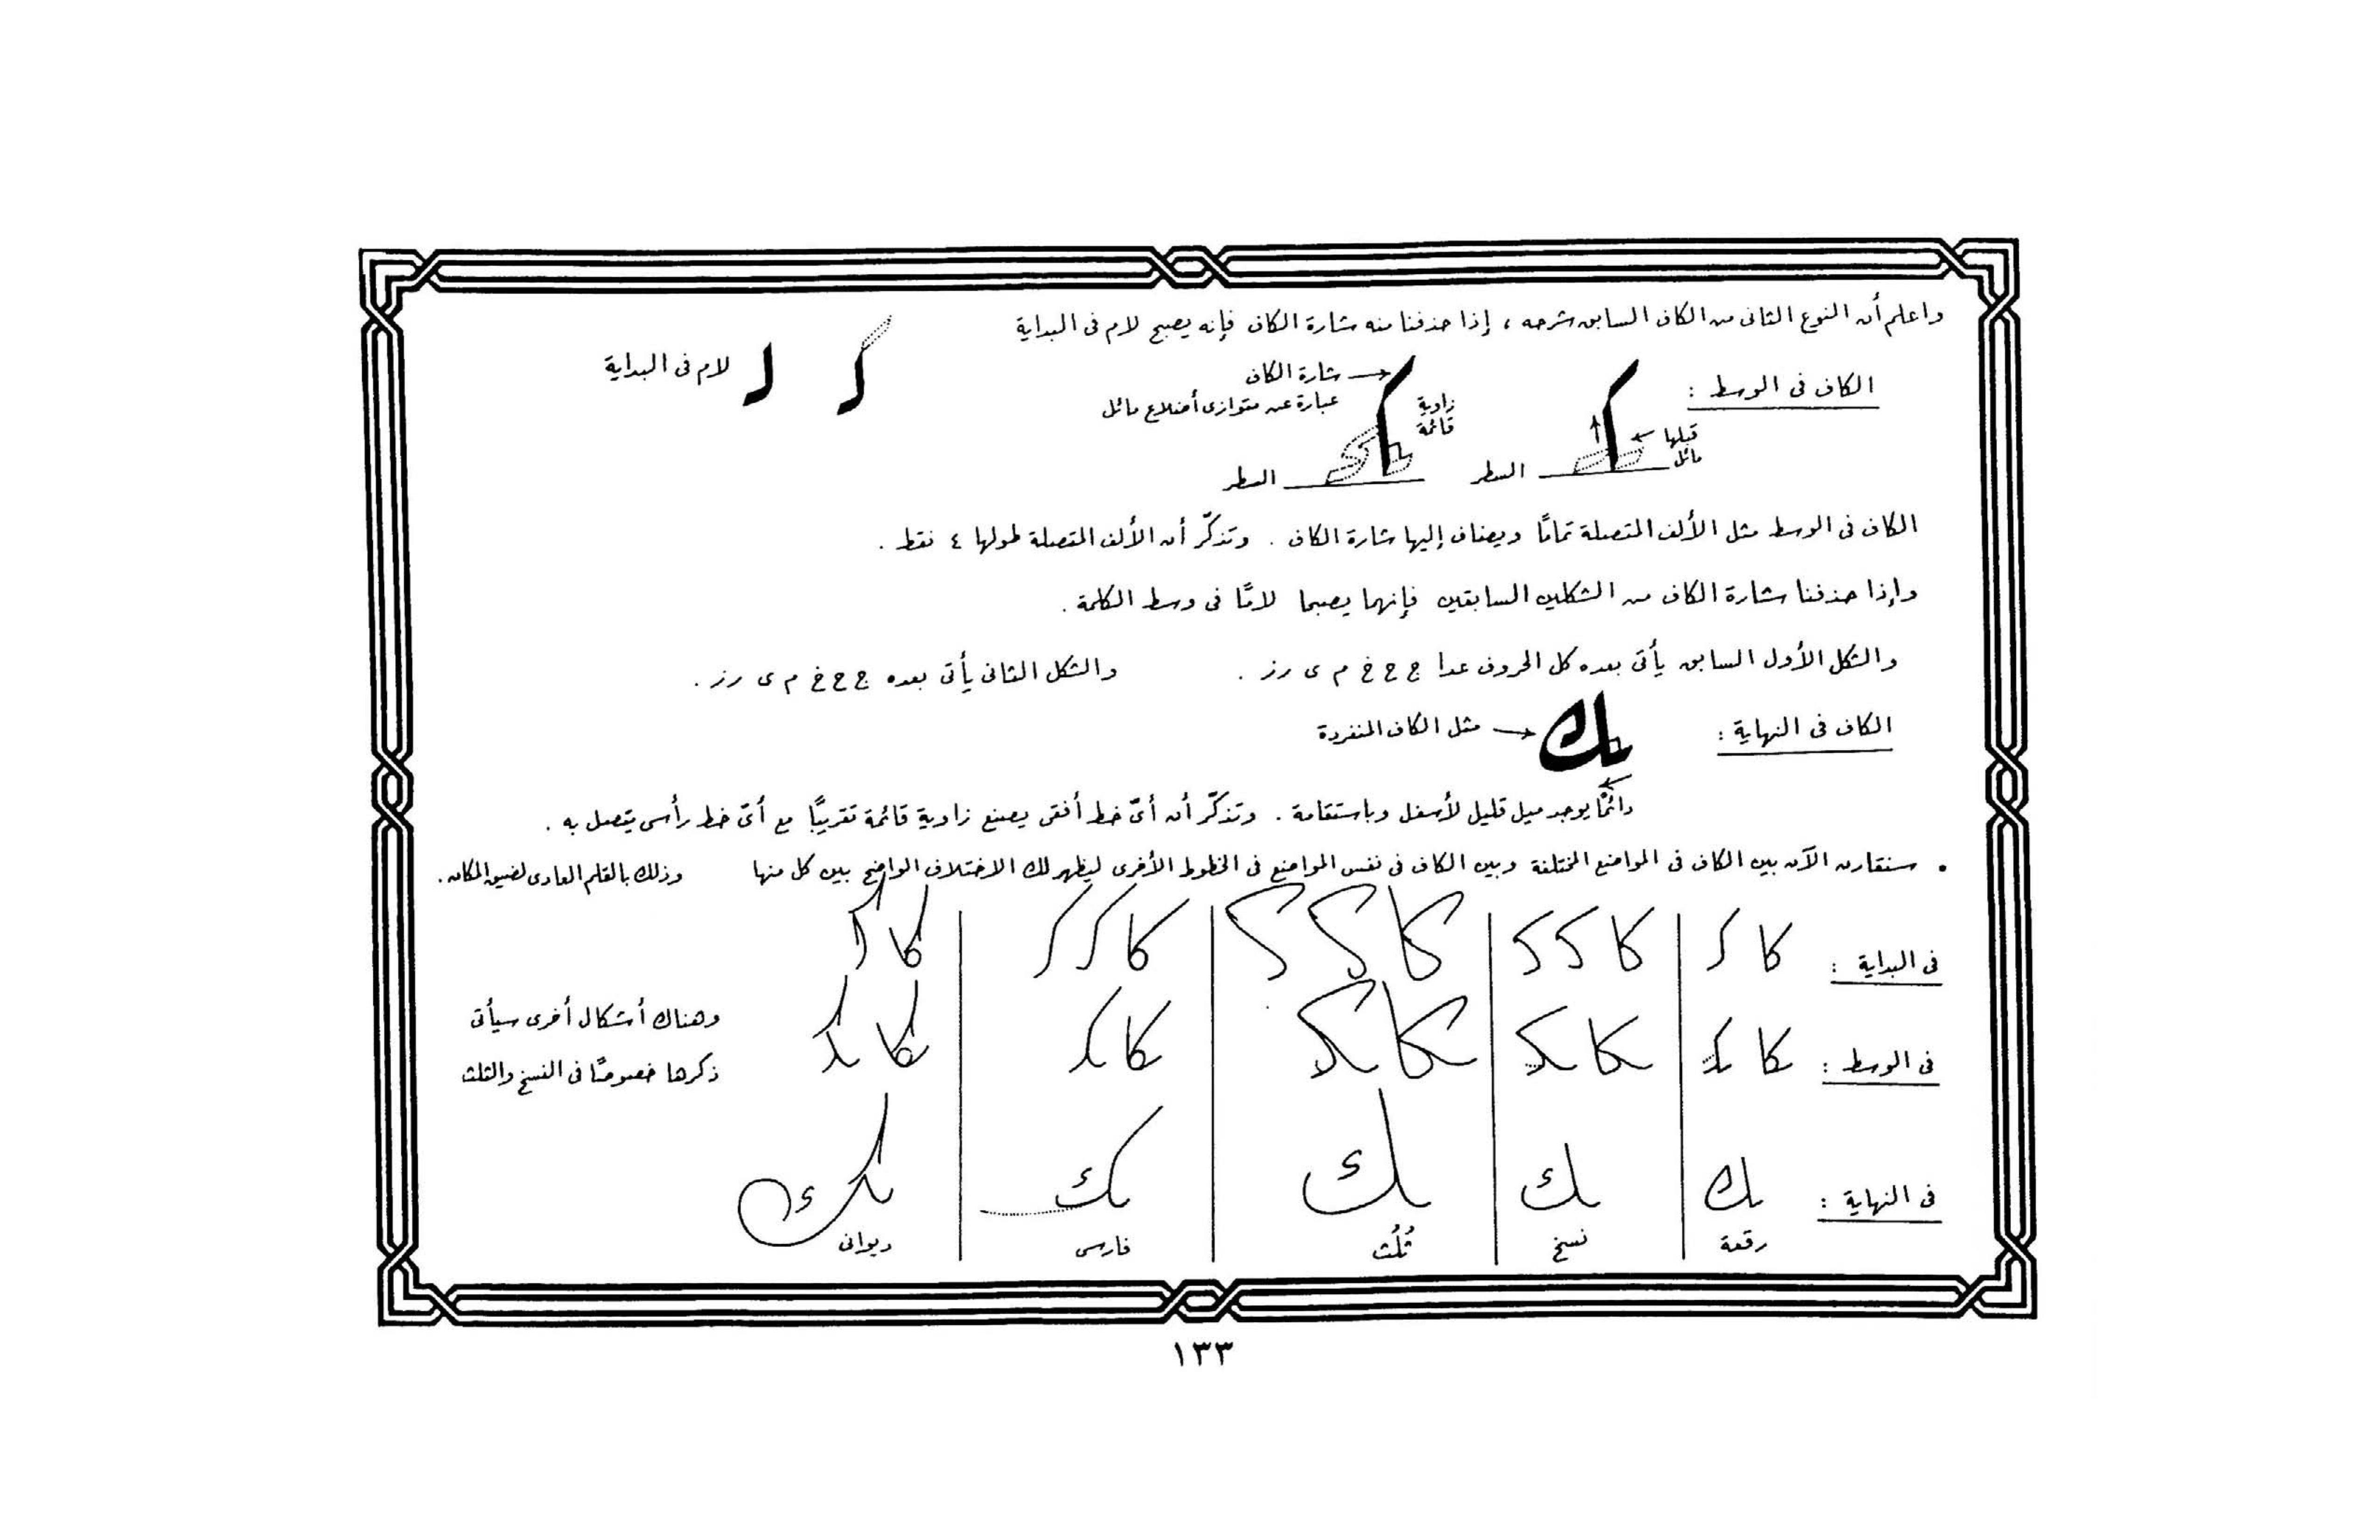 واعلم أن النوع الثانى من الكاف السابق شرحه ، إذا حذفنا منه شارة الكاف فإنه يصبح لام فى البداية
لام فى البداية
الكاف فى الوسط :
قبلها مائل
السطر
شارة الكاف
عبارة عن متوازى أضلاع مائل
زاوية قائمة
السطر
الكاف فى الوسط مثل الألف المتصلة تمامًا ويضاف إليها شارة الكاف . وتذكّر أن الألف المتصلة طولها ٤ نقط .
وإذا حذفنا شارة الكاف من الشكلين السابقين فإنهما يصبحا لامًا فى وسط الكلمة .
والشكل الأول السابق يأتى بعده كل الحروف عدا ج ح خ م ى ر ز . والشكل الثانى يأتى بعده ج ح خ م ى ر ز .
الكاف فى النهاية : ك مثل الكاف المنفردة
دائمًا يوجد ميل قليل لأسفل وباستقامة . وتذكّر أن أىّ خط أفقى يصنع زاوية قائمة تقريبًا مع أىّ خط رأسى يتصل به .
• سنقارن الآن بين الكاف فى المواضع المختلفة وبين الكاف فى نفس المواضع فى الخطوط الأخرى ليظهر لك الاختلاف الواضح بين كل منها وذلك بالقلم العادى لضيق المكان .
فى البداية : كا كـ كا كـ كـ كا كـ كـ كا كـ كـ كا كـ
فى الوسط : ـكا ـكـ ـكا ـكـ ـكا ـكـ ـكا ـكـ ـكا ـكـ
وهناك أشكال أخرى سيأتى
ذكرها خصوصًا فى النسخ والثلث
فى النهاية : ـك ـك ـك ـك ـك
رقعة نسخ ثُلُث فارسى ديوانى
١٣٣